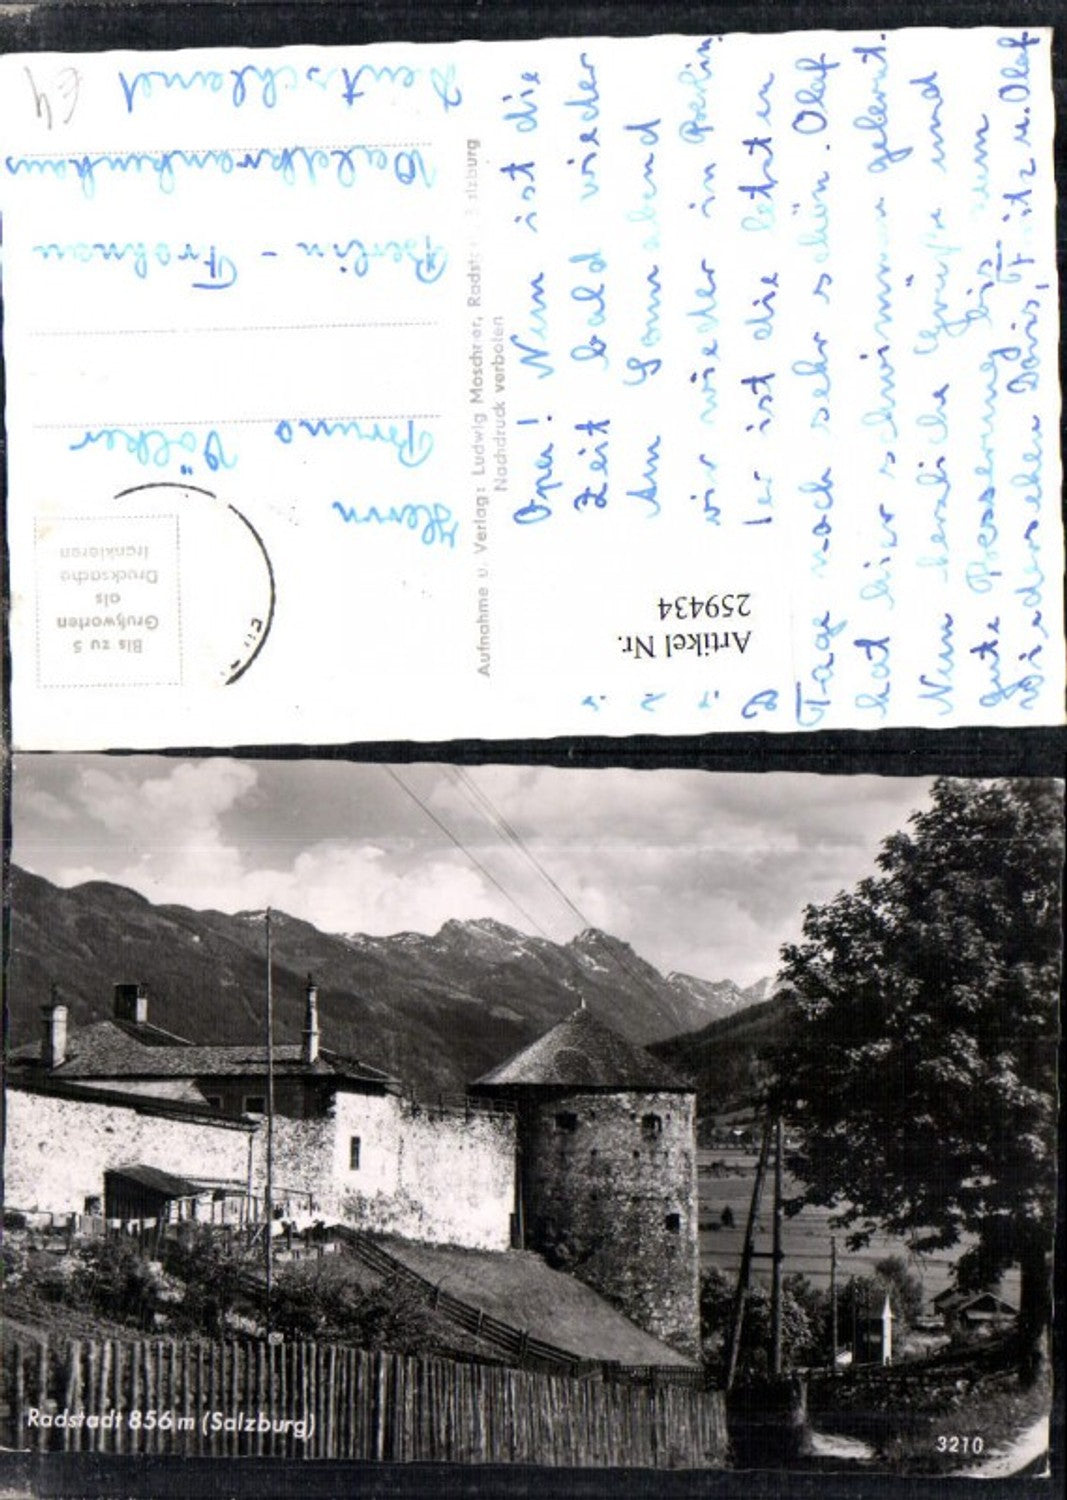 Opa! Nun ist die
Zeit bald wieder
Am Sonnabend
wir wieder in Berlin.
ist die letzten
Tage noch sehr schön. Olaf
hat hier schwimmen gelernt.
Nun herzliche Grüße und
gute Besserung bis zum
Wiedersehen Doris, Fritz u. Olaf
Artikel Nr.
259434
Aufnahme u. Verlag: Ludwig Moschrer, Radst Salzburg
Nachdruck verboten
Bis zu 5
Grußworten
als
Drucksache
frankieren
Herrn
Bruno Völker
Berlin - Frohnau
Waldkrankenhaus
Deutschland
€4
Radstadt 856 m (Salzburg)
3210